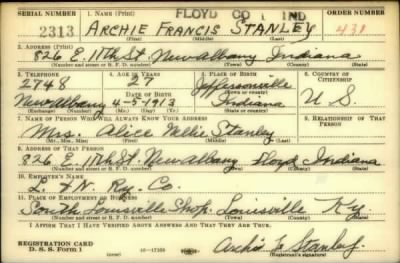 SERIAL NUMBER 1. NAME (Print) FLOYD CO IND ORDER NUMBER
2313 ARCHIE FRANCIS STANLEY 431
(First) (Middle) (Last)
2. ADDRESS (Print)
826 E. 11th St. New Albany Indiana
(Number and street or R. F. D. number) (Town) (County) (State)
3. TELEPHONE 4. AGE IN YEARS 5. PLACE OF BIRTH 6. COUNTRY OF CITIZENSHIP
2748 27 Jeffersonville
DATE OF BIRTH (Town or county)
New Albany 4-5-1913 Indiana U S.
(Exchange) (Number) (Mo.) (Day) (Yr.) (State or country)
7. NAME OF PERSON WHO WILL ALWAYS KNOW YOUR ADDRESS 8. RELATIONSHIP OF THAT PERSON
Mrs. Alice Nellie Stanley
(Mr., Mrs., Miss) (First) (Middle) (Last)
9. ADDRESS OF THAT PERSON
826 E. 11th St. New Albany Floyd Indiana
(Number and street or R. F. D. number) (Town) (County) (State)
10. EMPLOYER'S NAME
L. & N. Ry. Co.
11. PLACE OF EMPLOYMENT OR BUSINESS
South Louisville Shop. Louisville Ky.
(Number and street or R. F. D. number) (Town) (County) (State)
I AFFIRM THAT I HAVE VERIFIED ABOVE ANSWERS AND THAT THEY ARE TRUE.
REGISTRATION CARD
D. S. S. Form 1 16-17105 Archie F. Stanley.
(Registrant's signature)